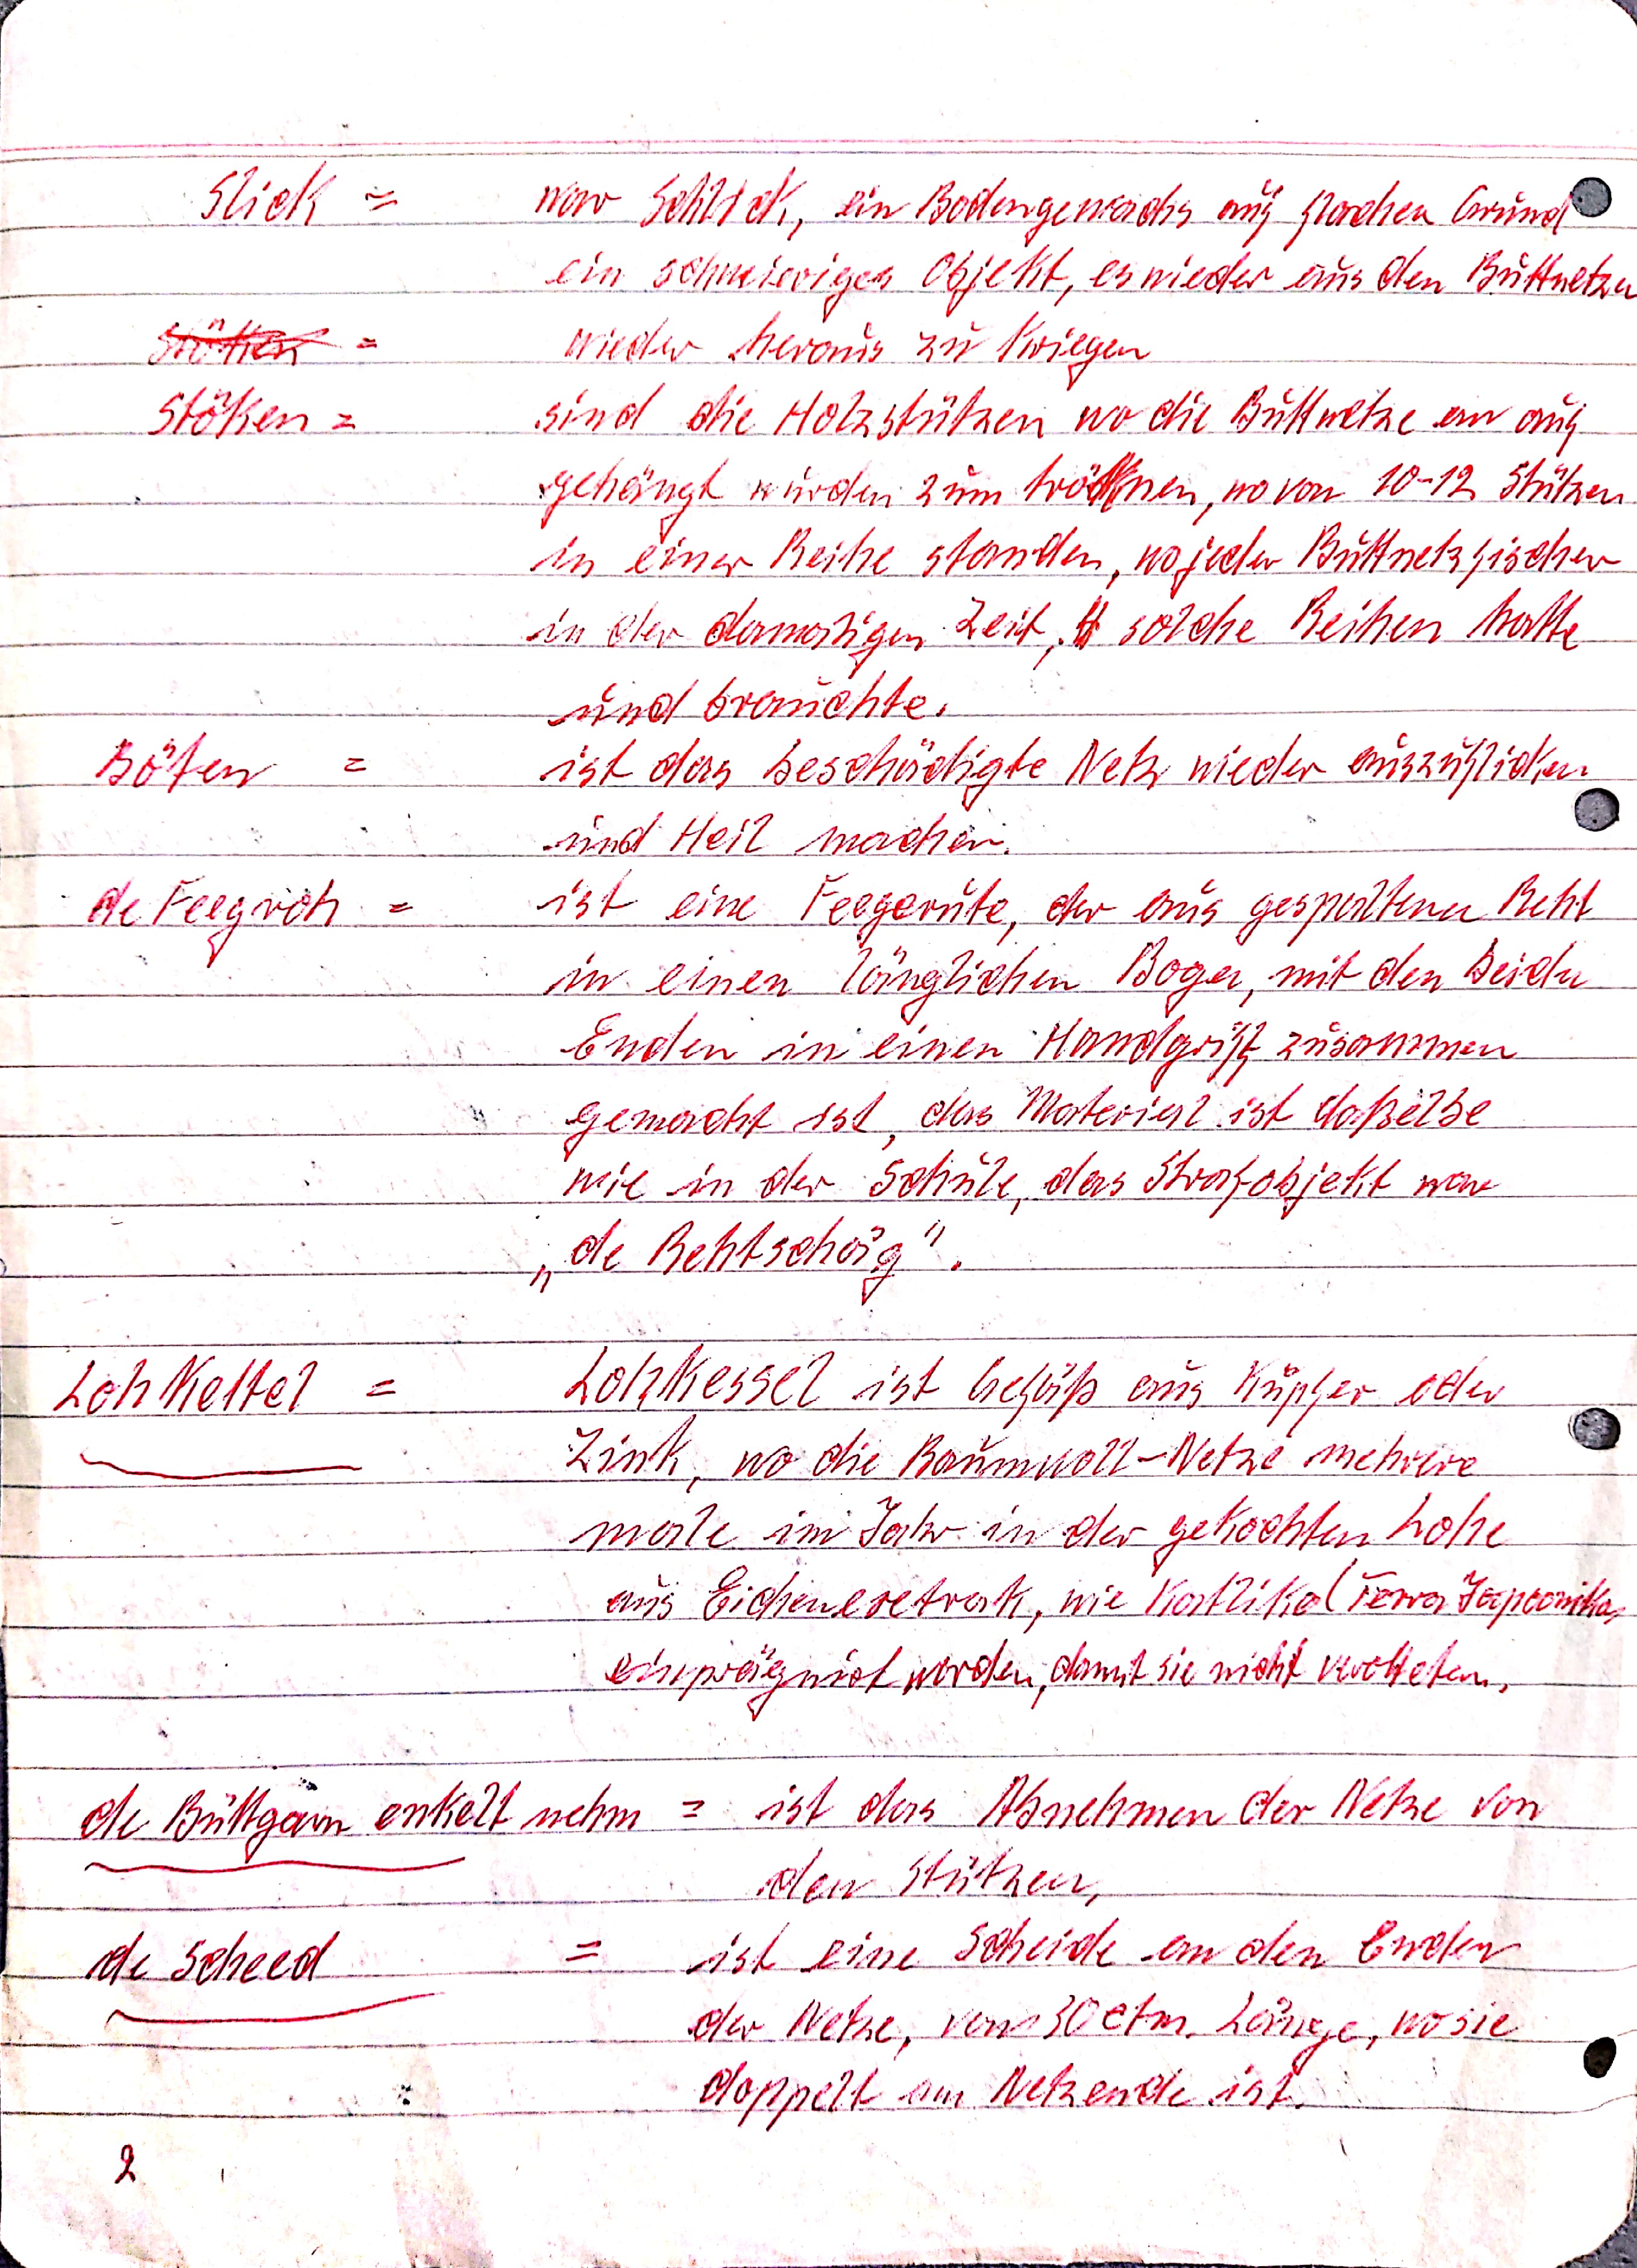 Slick = war Schlick, ein Bodengewächs auf flachen Grund
ein schwieriges Objekt, es wieder aus den Büttnetzen
Stötten = wieder heraus zu kriegen
Stöken = sind die Holzstützen wo die Büttnetze an auf
gehängt wurden zum tröcknen, wo von 10-12 Stützen
in einer Reihe standen, wo jeder Büttnetzfischer
in der damaligen Zeit, 4 solche Reihen hatte
und brauchte.
Böten = ist das beschädigte Netz wieder auszuflicken
und Heil machen.
de Feegroh = ist eine Feegerute, der aus gespaltenen Reht
in einen länglichen Bogen, mit den beiden
Enden in einen Handgriff zusammen
gemacht ist, das Material ist daßelbe
wie in der Schule, das Strafobjekt war
„de Rehtschäg".
Lohkettel = Lohkessel ist Gefäß aus Kupfer oder
Zink, wo die Baumwoll-Netze mehrere
male im Jahr in der gekochten Lohe
aus Eichenextrak, wie Katlika (Terra Japoonika,
einprägniet worden, damit sie nicht verotteten.
de Büttgarn enkelt nehm = ist das Abnehmen der Netze von
den Stützen,
de Scheed = ist eine Scheide an den Enden
der Netze, von 30 ctm. Länge, wo sie
doppelt am Netzende ist.
2